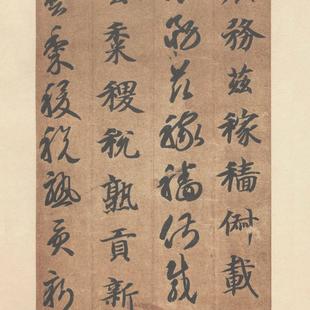 務茲稼穡俶載
務茲稼穡俶載
黍稷稅熟貢新
黍稷稅熟貢新